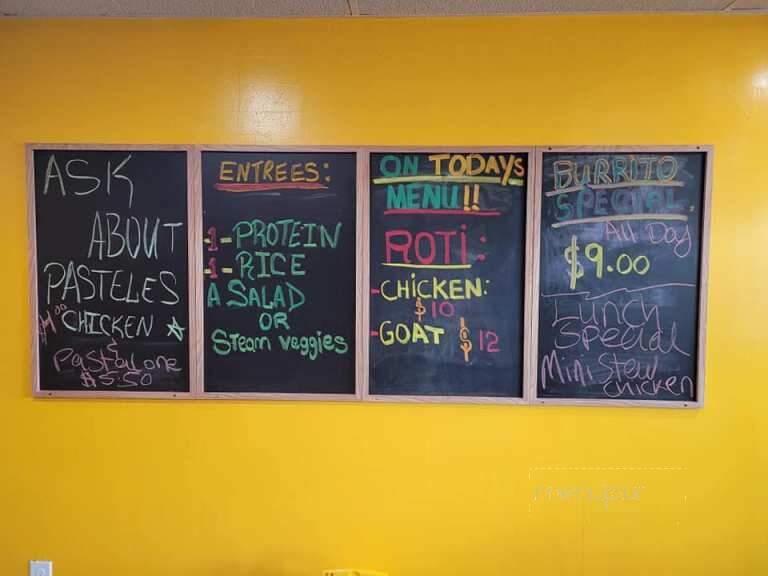 ASK
ABOUT
PASTELES
CHICKEN
&
Pastel one
$5.50
ENTREES:
-1-PROTEIN
-1-RICE
A SALAD
OR
Steam veggies
ON TODAYS
MENU!!
ROTI:
-CHICKEN:
$10
-GOAT $12
BURRITO
SPECIAL.
All Day
$9.00
Lunch
Special
Mini Stew
chicken